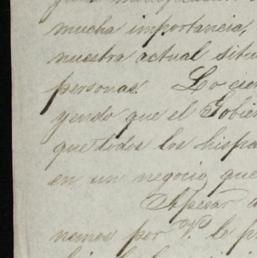 mucha importancia,
nuestra actual situ
personas. Lo cier
yendo que el Gobier
que todos los hispa
en un negocio, que
Apesar d
nemos por V. lo p